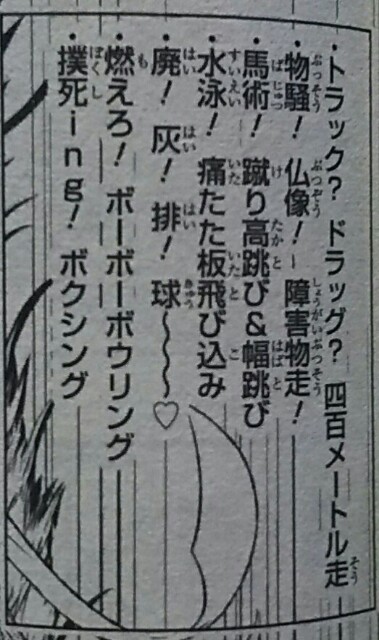 ・トラック？ドラッグ？四百メートル走
・物騒！仏像！障害物走！
・馬術！蹴り高跳び＆幅跳び
・水泳！痛たた板飛び込み
・廃！灰！排！球〜〜〜♡
・燃えろ！ボーボーボウリング
・撲死ing！ボクシング